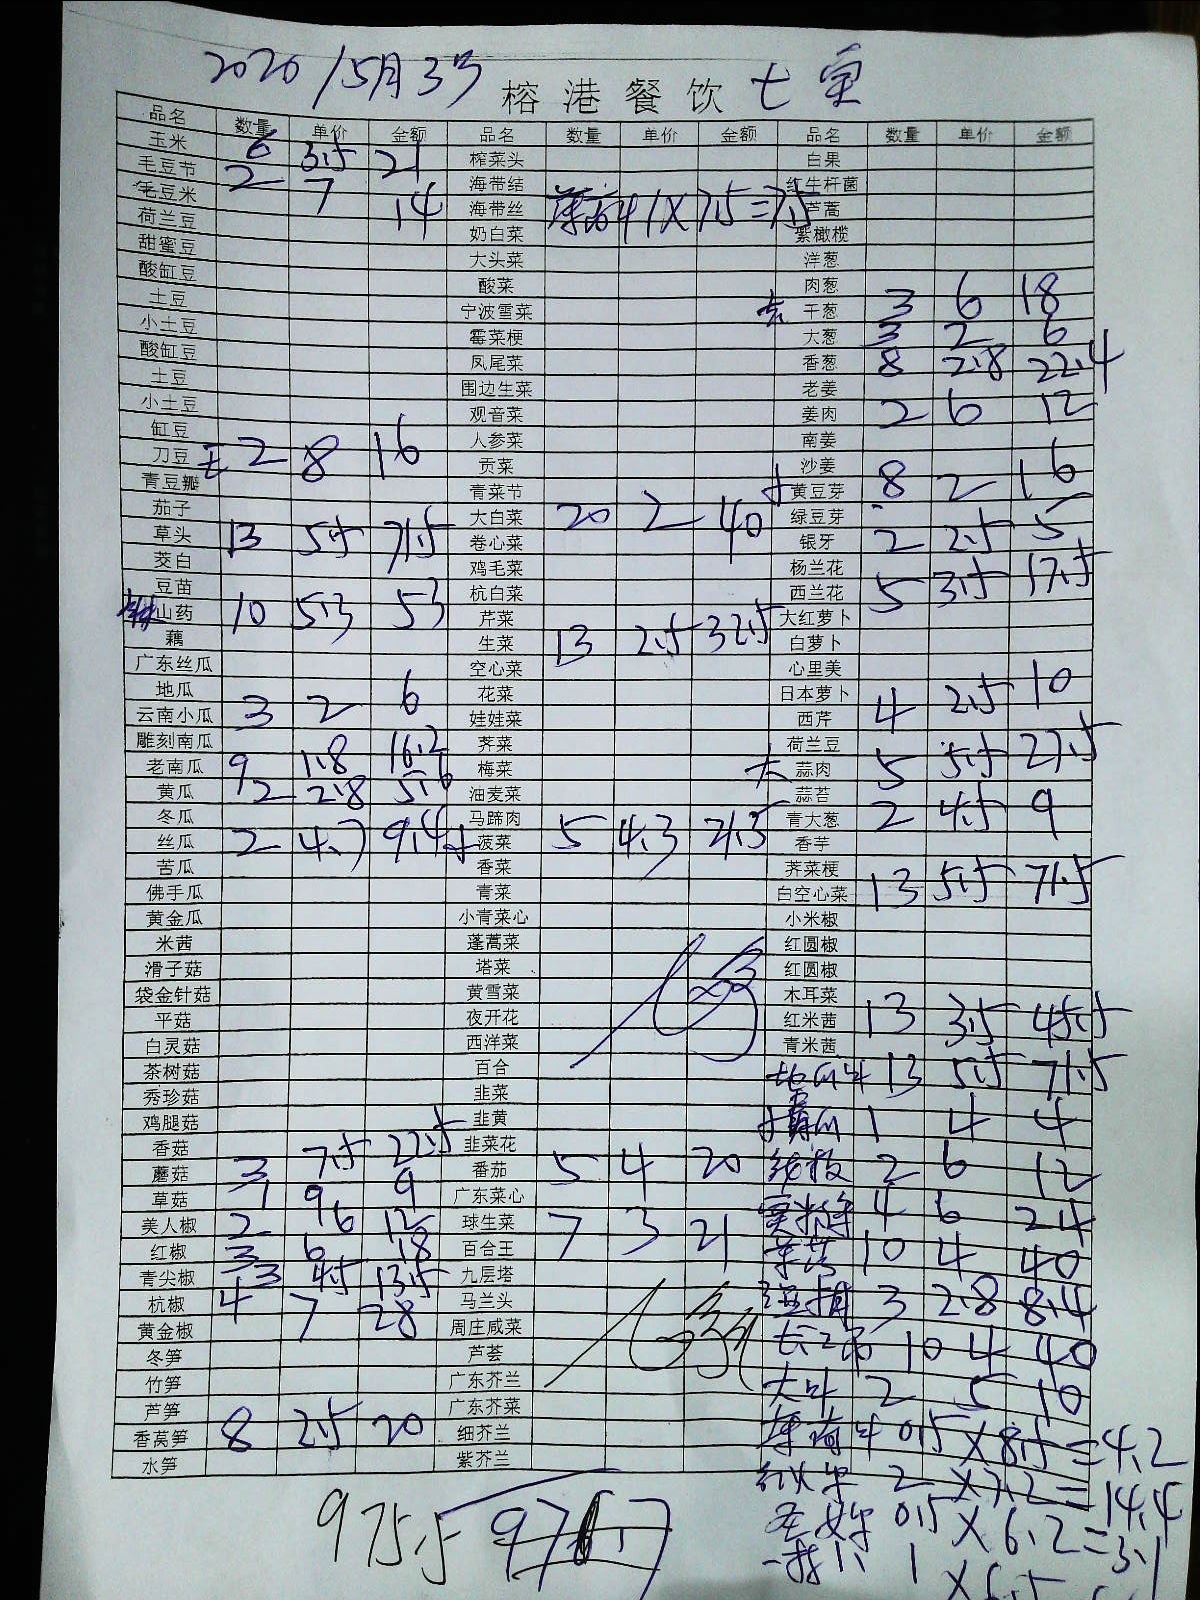 2020/5月3号 榕港餐饮 七宝
品名 数量 单价 金额 品名 数量 单价 金额 品名 数量 单价 金额
玉米 6 3.5 21 榨菜头 白果
毛豆节 2 7 14 海带结 红牛杆菌
毛豆米 海带丝 1X7.5=7.5 芦蒿
荷兰豆 奶白菜 紫橄榄
甜蜜豆 大头菜 洋葱
酸缸豆 酸菜 肉葱
土豆 宁波雪菜 干葱 3 6 18
小土豆 霉菜梗 大葱 3 2 6
酸缸豆 凤尾菜 香葱 8 2.8 22.4
土豆 围边生菜 老姜
小土豆 观音菜 姜肉 2 6 12
缸豆 人参菜 南姜
刀豆 2 8 16 贡菜 沙姜
青豆瓣 青菜节 黄豆芽 8 2 16
茄子 大白菜 20 2 40 绿豆芽
草头 13 5.5 71.5 卷心菜 银牙 2 2.5 5
茭白 鸡毛菜 杨兰花
豆苗 杭白菜 西兰花 5 3.5 17.5
山药 10 5.3 53 芹菜 大红萝卜
藕 生菜 13 2.5 32.5 白萝卜
广东丝瓜 空心菜 心里美
地瓜 花菜 日本萝卜 4 2.5 10
云南小瓜 3 2 6 娃娃菜 西芹
雕刻南瓜 荠菜 荷兰豆
老南瓜 9 1.8 16.2 梅菜 大 蒜肉 5 5.5 27.5
黄瓜 2 2.8 5.6 油麦菜 蒜苔
冬瓜 马蹄肉 青大葱 2 4.5 9
丝瓜 2 4.7 9.4 菠菜 5 4.3 21.5 香芋
苦瓜 香菜 荠菜梗
佛手瓜 青菜 白空心菜 13 5.5 71.5
黄金瓜 小青菜心 小米椒
米茜 蓬蒿菜 红圆椒
滑子菇 塔菜 红圆椒
袋金针菇 黄雪菜 木耳菜
平菇 夜开花 红米茜 13 3.5 45.5
白灵菇 西洋菜 青米茜
茶树菇 百合 地瓜叶 13 5.5 71.5
秀珍菇 韭菜
鸡腿菇 韭黄 1 4 4
香菇 7.5 22.5 韭菜花
蘑菇 3 番茄 5 4 20 2 6 12
草菇 1 9 9 广东菜心
美人椒 2 6 12 球生菜 7 3 21 4 6 24
红椒 3 6 18 百合王 10 4 40
青尖椒 3 4.5 13.5 九层塔
杭椒 4 7 28 马兰头 3 2.8 8.4
黄金椒 周庄咸菜 10 4 40
冬笋 芦荟
竹笋 广东芥兰 大叶 2 5 10
芦笋 广东芥菜
香莴笋 8 2.5 20 细芥兰 0.5X8.5=4.2
水笋 紫芥兰 2X7.2=14.4
975.5 0.5X6.2=3.1
1X6.5